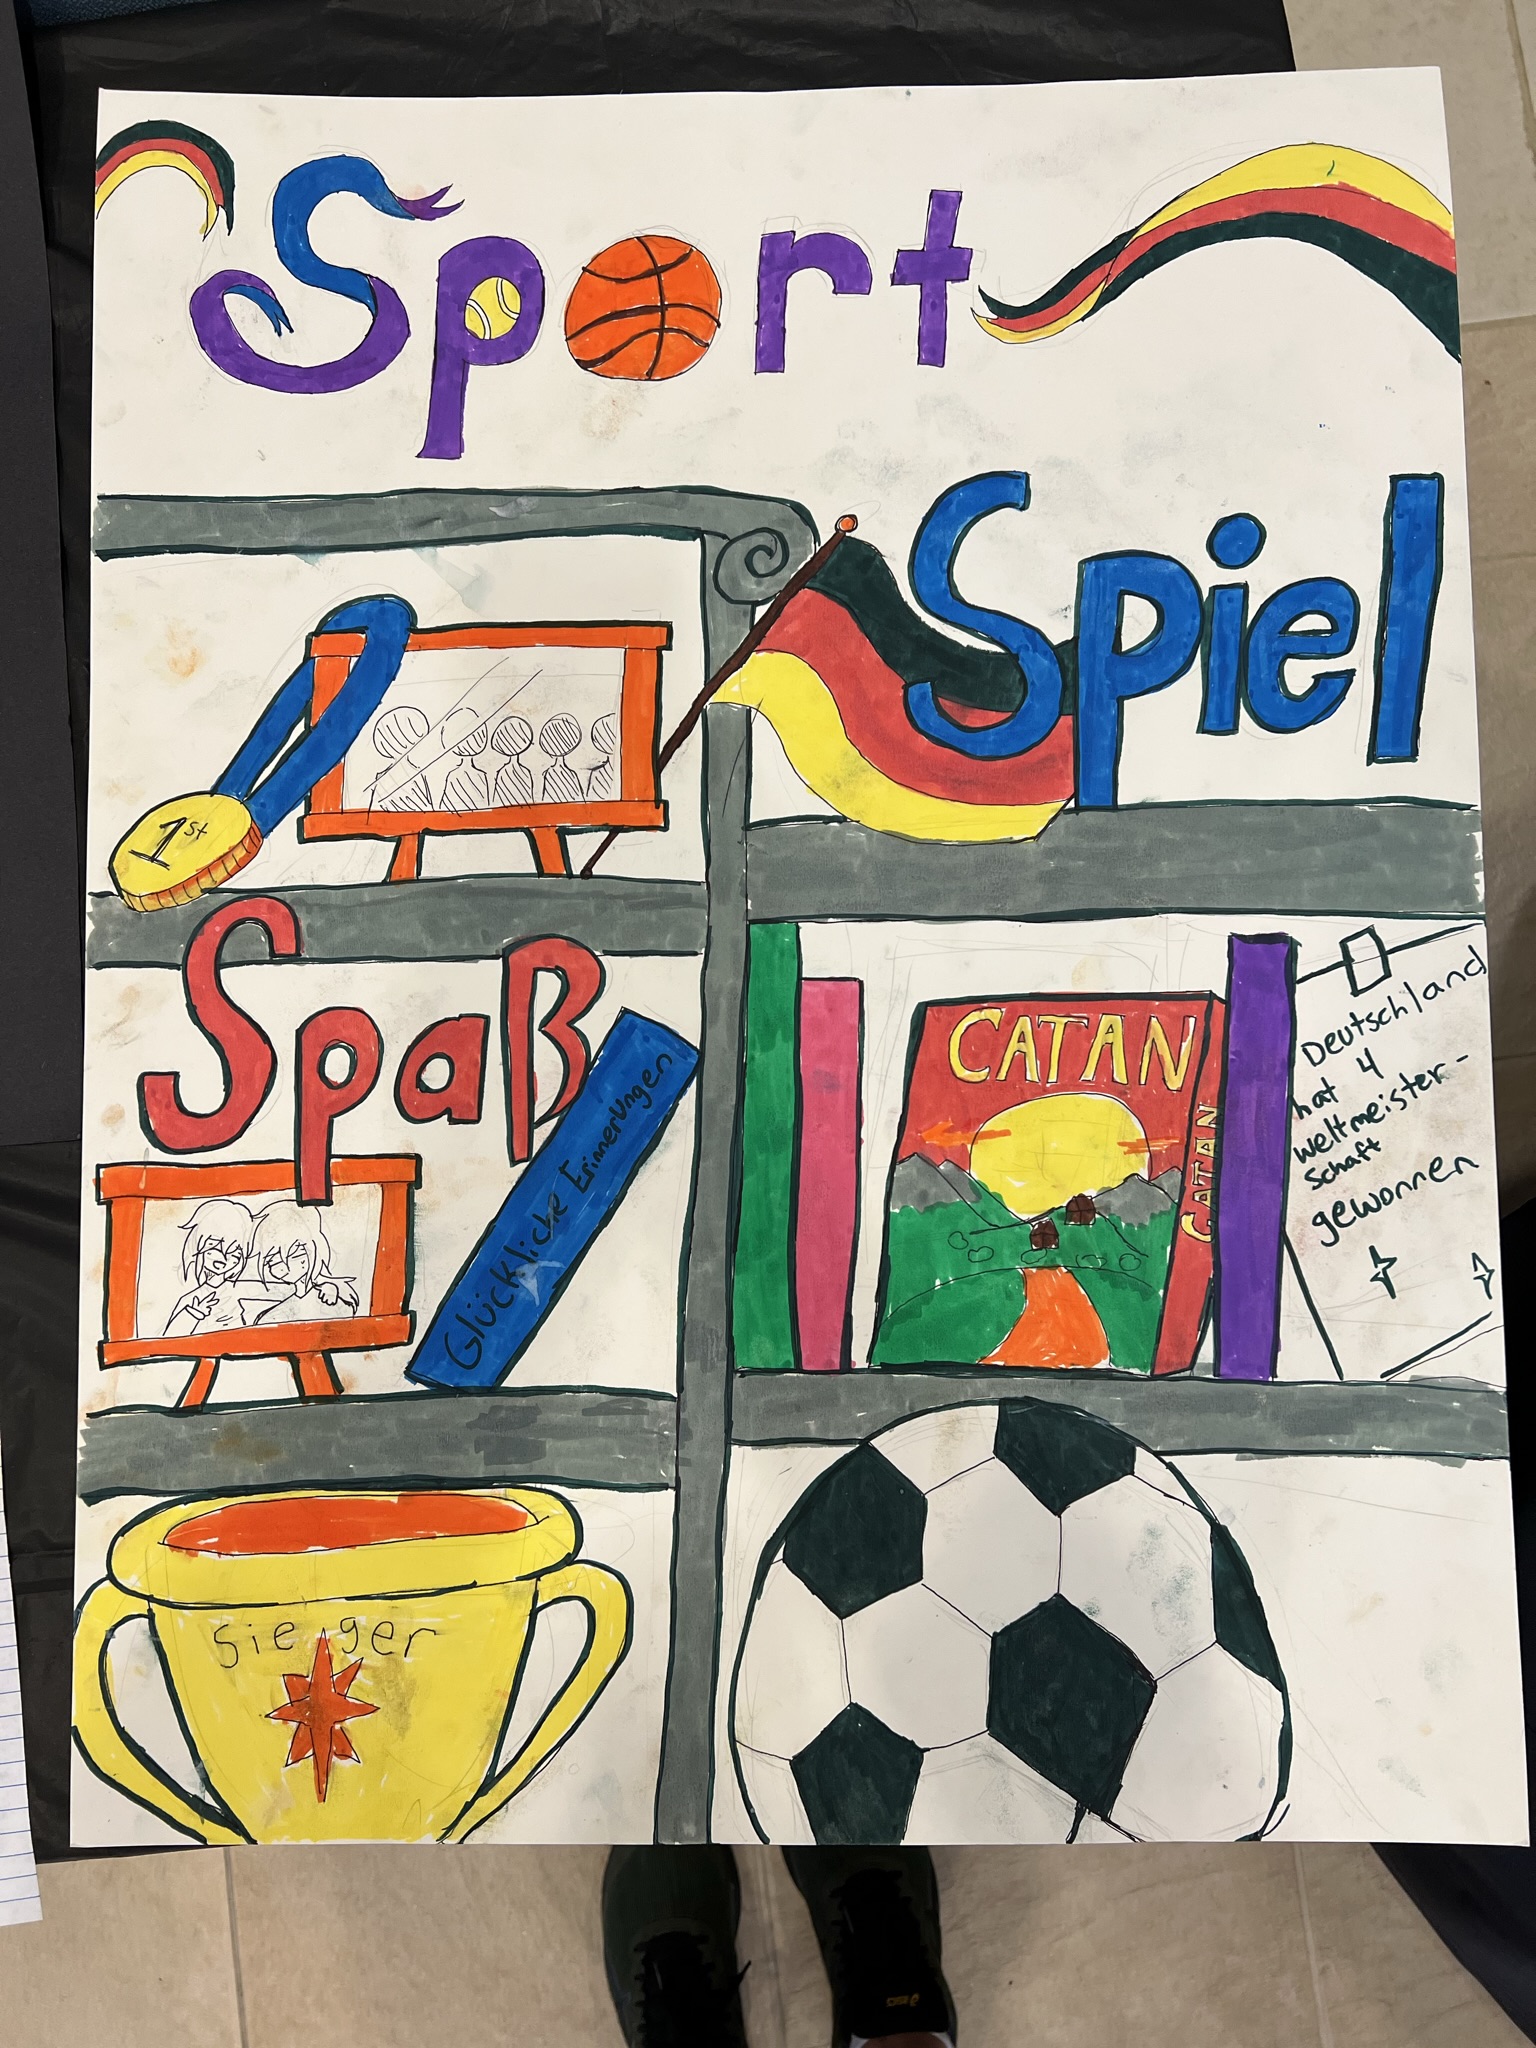 Sport
Spiel
1st
Spaß
Glückliche Erinnerungen
CATAN
CATAN
Deutschland
hat 4
weltmeister-
schaft
gewonnen
Sieger